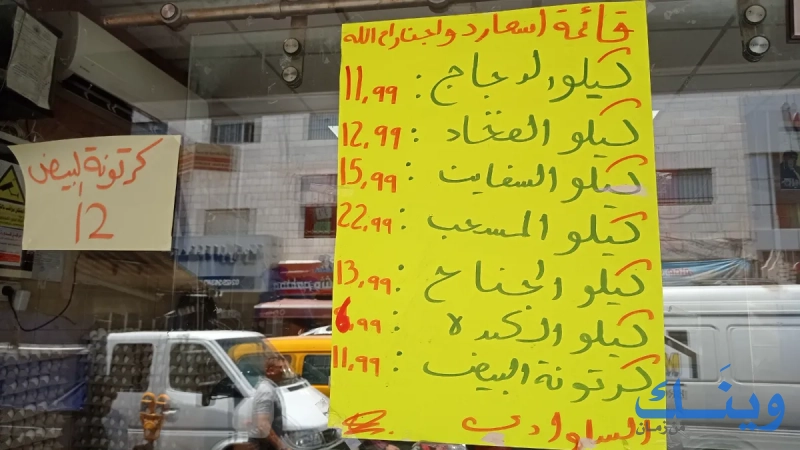 قائمة اسعار دواجن رام الله
كيلو الدجاج : 11,99
كيلو الفخاد : 12,99
كيلو السفاين : 15,99
كيلو المسحب : 22,99
كيلو الجناح : 13,99
كيلو الكبدة : 6,99
كرتونة البيض : 11,99
كرتونة البيض
12
وينك
من زمان